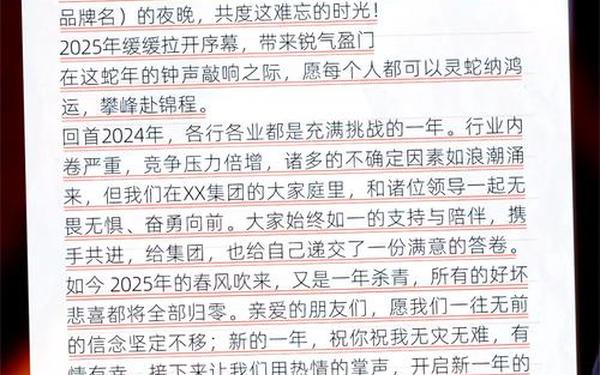 品牌名）的夜晚，共度这难忘的时光！
2025年缓缓拉开序幕，带来锐气盈门
在这蛇年的钟声敲响之际，愿每个人都可以灵蛇纳鸿
运，攀峰赴锦程。
回首2024年，各行各业都是充满挑战的一年。行业内
卷严重，竞争压力倍增，诸多的不确定因素如浪潮涌
来，但我们在XX集团的大家庭里，和诸位领导一起无
畏无惧、奋勇向前。大家始终如一的支持与陪伴，携
手共进，给集团，也给自己递交了一份满意的答卷。
如今 2025年的春风吹来，又是一年杀青，所有的好坏
悲喜都将全部归零。亲爱的朋友们，愿我们一往无前
的信念坚定不移；新的一年，祝你祝我无灾无难，有
情有幸。接下来让我们用热情的掌声，开启新一年的